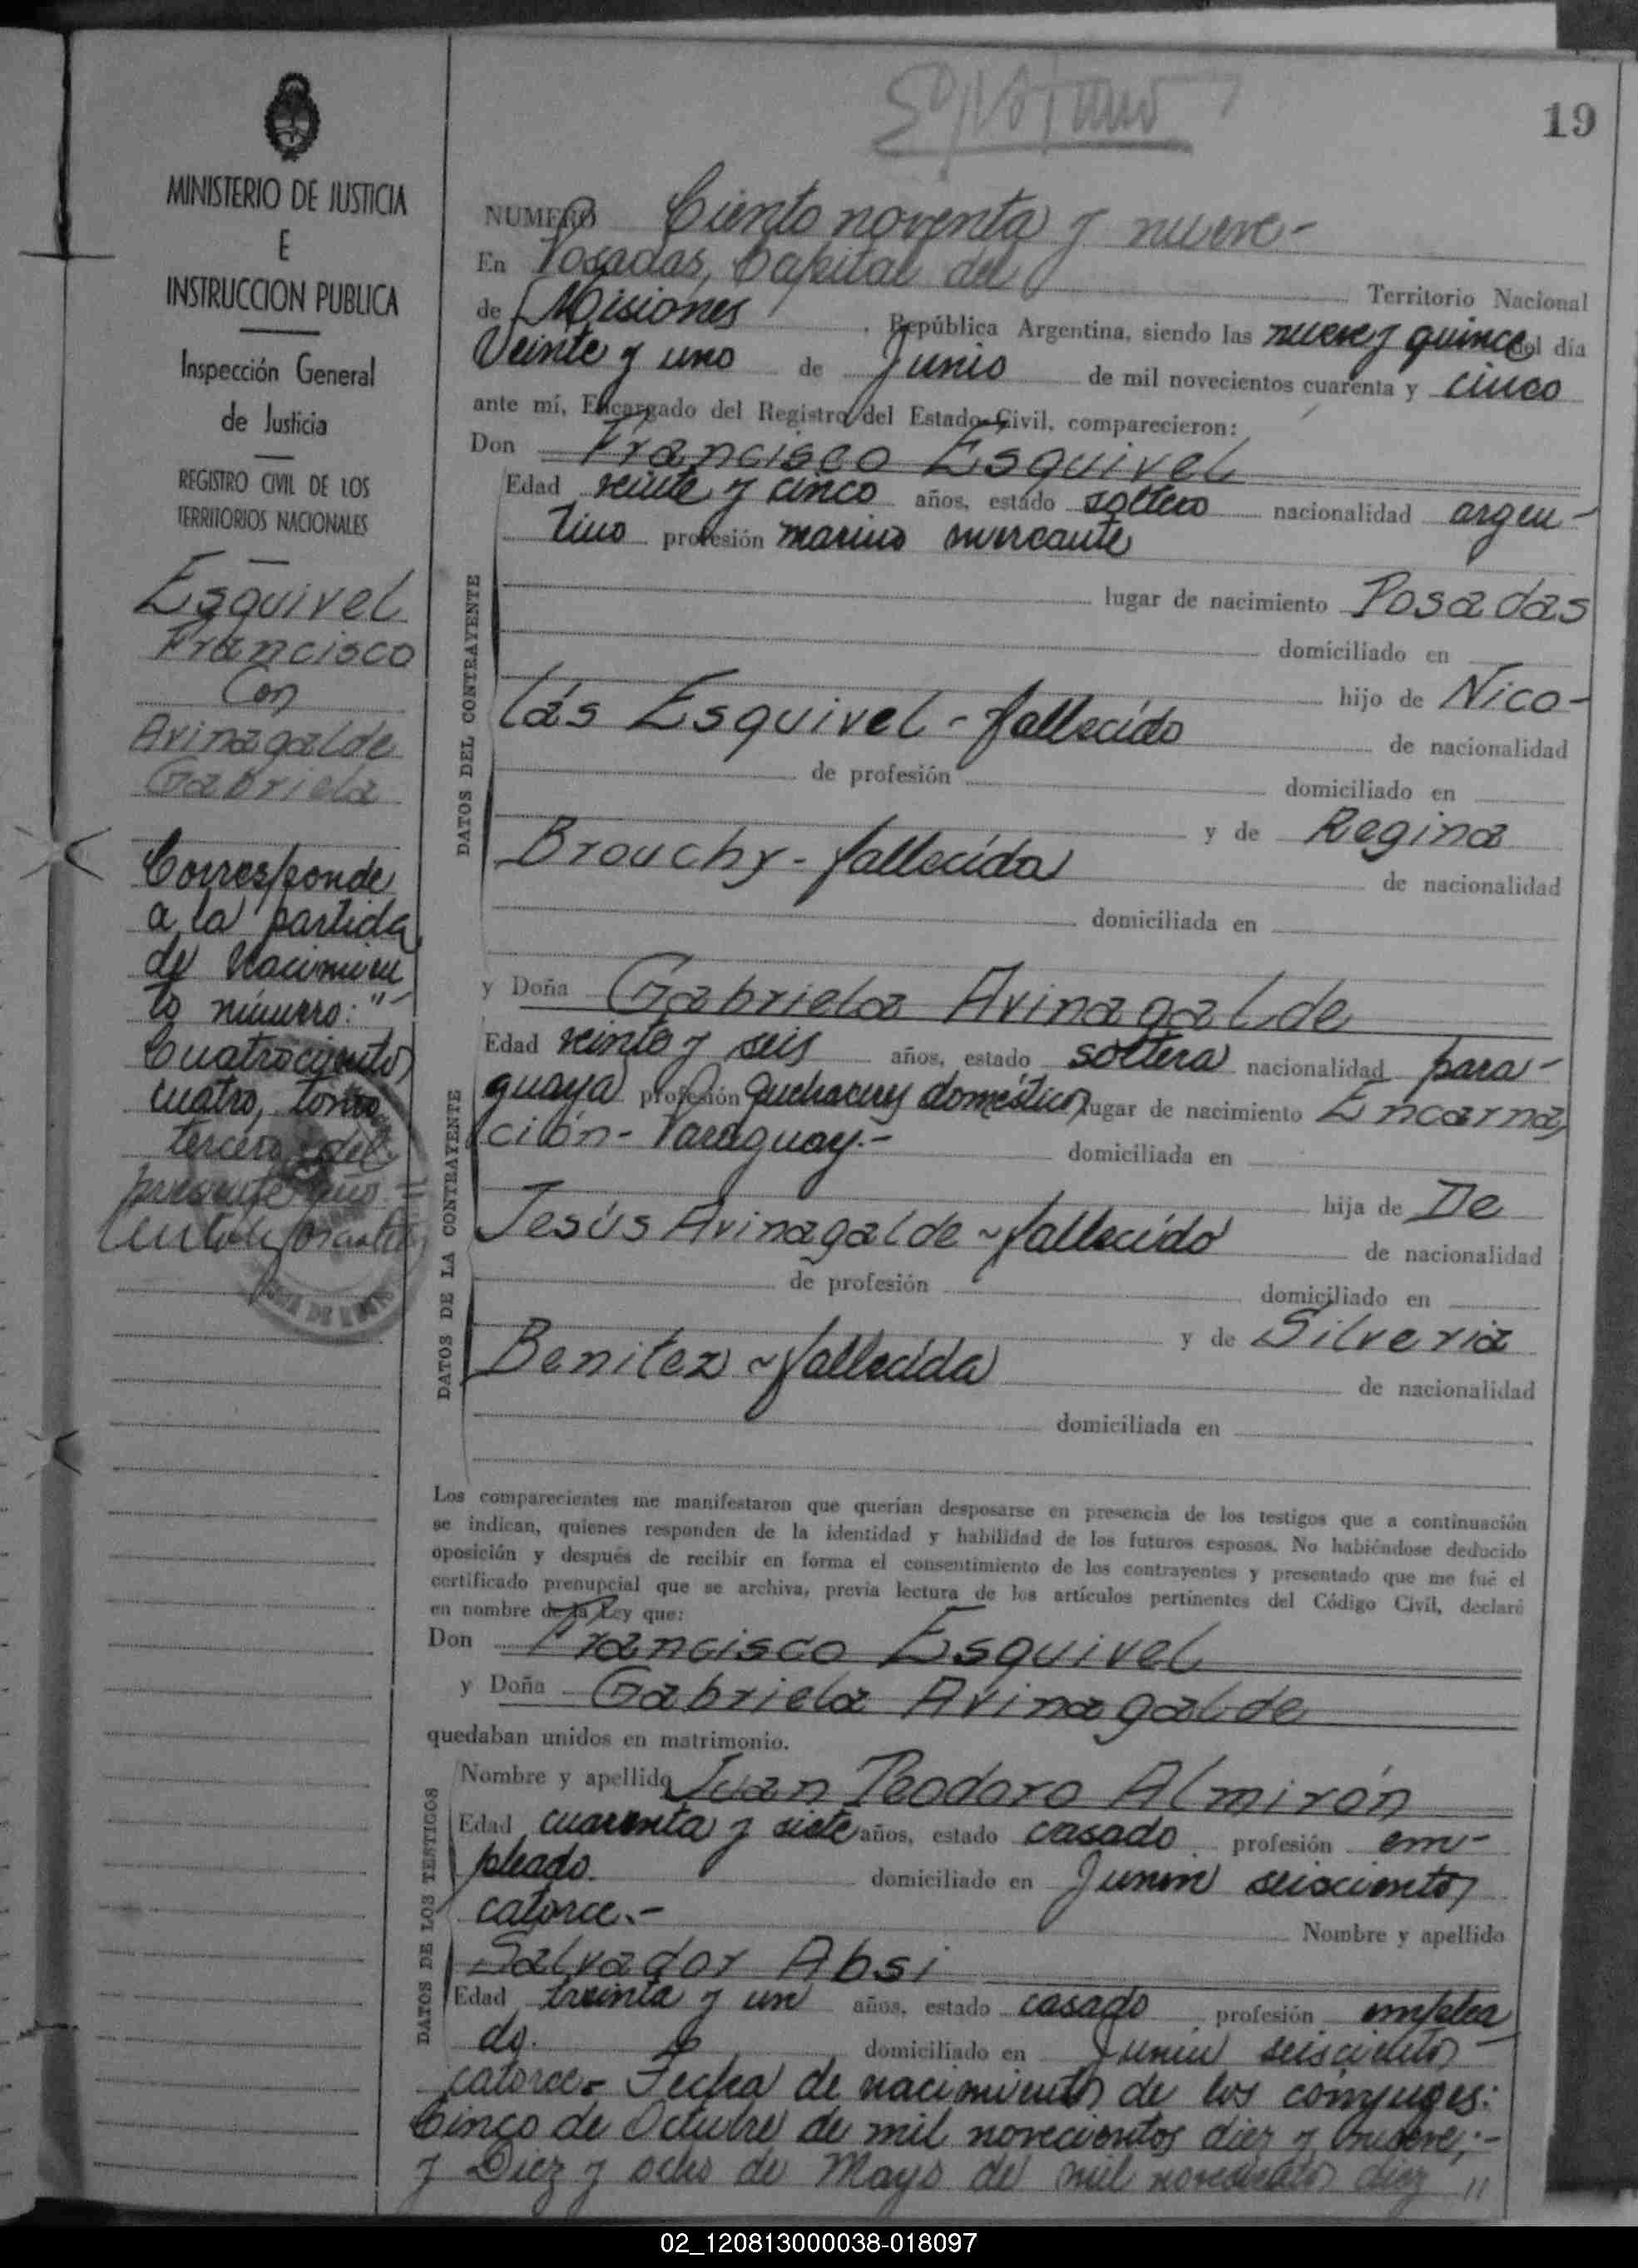 19
MINISTERIO DE JUSTICIA
E
INSTRUCCION PUBLICA
Inspección General
de Justicia
REGISTRO CIVIL DE LOS
TERRITORIOS NACIONALES
Esquivel
Francisco
Con
Avinagalde
Gabriela
Corresponde
a la partida
de Nacimien
to número:"-
Cuatrocientos
cuatro, tomo
tercero del
presente año
NUMERO Ciento noventa y nueve-
En Posadas, Capital del Territorio Nacional
de Misiones, República Argentina, siendo las nueve y quince del día
Veinte y uno de Junio de mil novecientos cuarenta y cinco
ante mí, Encargado del Registro del Estado Civil, comparecieron:
Don Francisco Esquivel
DATOS DEL CONTRAYENTE
Edad veinte y cinco años, estado soltero nacionalidad argen-
tino profesión marino mercante
lugar de nacimiento Posadas
domiciliado en
hijo de Nico-
lás Esquivel - fallecido de nacionalidad
de profesión domiciliado en
y de Regina
Brouchy - fallecida de nacionalidad
domiciliada en
y Doña Gabriela Avinagalde
DATOS DE LA CONTRAYENTE
Edad veinte y seis años, estado soltera nacionalidad para-
guaya profesión quehaceres domésticos lugar de nacimiento Encarna
ción - Paraguay.- domiciliada en
hija de De
Jesús Avinagalde ~ fallecido de nacionalidad
de profesión domiciliado en
y de Silveria
Benitez ~ fallecida de nacionalidad
domiciliada en
Los comparecientes me manifestaron que querían desposarse en presencia de los testigos que a continuación
se indican, quienes responden de la identidad y habilidad de los futuros esposos. No habiéndose deducido
oposición y después de recibir en forma el consentimiento de los contrayentes y presentado que me fué el
certificado prenupcial que se archiva, previa lectura de los artículos pertinentes del Código Civil, declaré
en nombre de la Ley que:
Don Francisco Esquivel
y Doña Gabriela Avinagalde
quedaban unidos en matrimonio.
DATOS DE LOS TESTIGOS
Nombre y apellido Juan Teodoro Almirón
Edad cuarenta y siete años, estado casado profesión em-
pleado. domiciliado en Junín seiscientos
catorce.- Nombre y apellido
Salvador Absi
Edad treinta y un años, estado casado profesión emplea
do. domiciliado en Junín seiscientos
catorce.- Fecha de nacimiento de los cónyuges:
Cinco de Octubre de mil novecientos diez y nueve;-
y Diez y ocho de Mayo de mil novecientos diez "
02_120813000038-018097